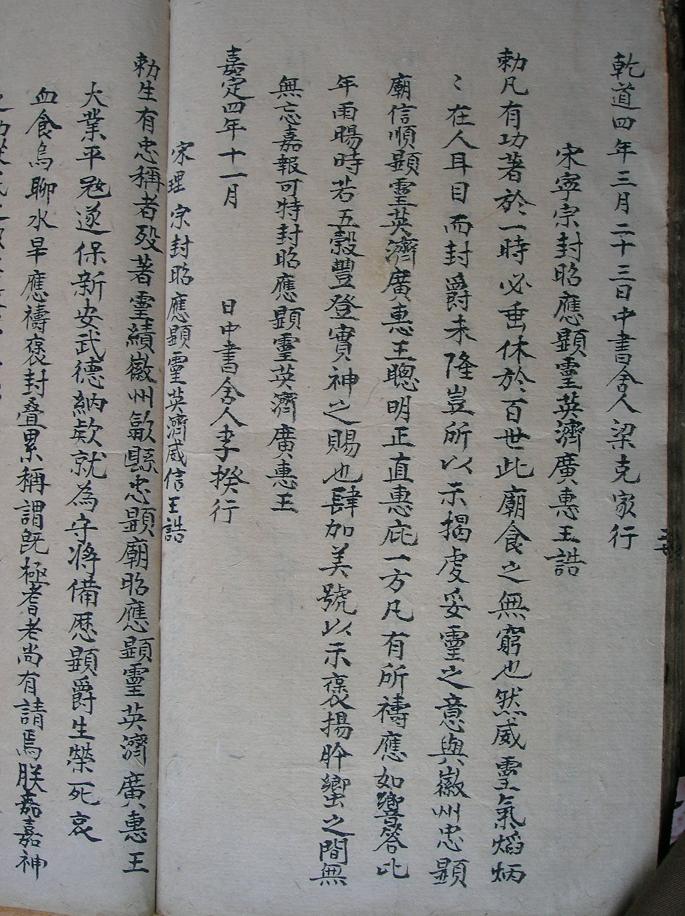 乾道四年三月二十三日中書舍人梁克家行
宋寧宗封昭應顯靈英濟廣惠王誥
勅凡有功著於一時必垂休於百世此廟食之無窮也然威靈氣熖炳
〻在人耳目而封爵未隆豈所以示揭虔妥靈之意與徽州忠顯
廟信順顯靈英濟廣惠王聰明正直惠庇一方凡有所禱應如響答比
年雨暘時若五穀豐登實神之賜也肆加美號以示褒揚肸蠁之間無
無忘嘉報可特封昭應顯靈英濟廣惠王
嘉定四年十一月 日中書舍人李揆行
宋理宗封昭應顯靈英濟威信王誥
勅生有忠稱者殁著靈績徽州歙縣忠顯廟昭應顯靈英濟廣惠王
大業平冦遂保新安武德納欵就為守將備歷顯爵生榮死哀
血食烏聊水旱應禱褒封叠累稱謂既極耆老尚有請焉朕嘉嘉神